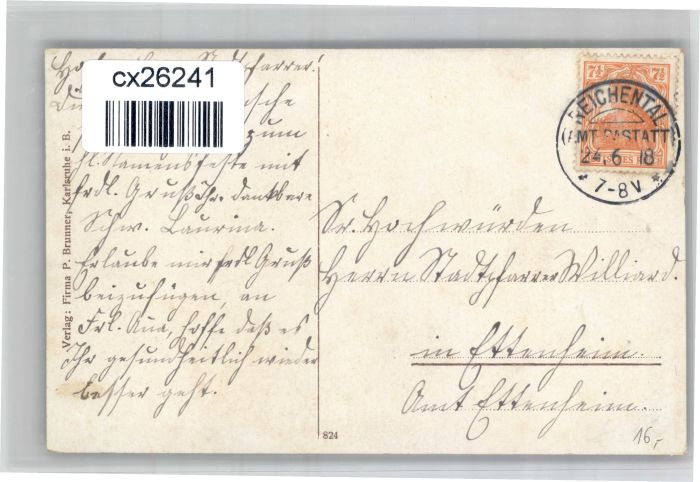 Stadtpfarrer!
cx26241
zum
hl. Namensfeste mit
frdl. Gruß Ihr. dankbare
Schw. Laurina.
Erlaube mir frdl Gruß
beizufügen, an
Frl. Ana, hoffe daß es
Ihr gesundheitlich wieder
besser geht.
Verlag: Firma P. Brunner, Karlsruhe i. B.
824
7½ 7½
REICHENTAL
(AMT RASTATT)
24.6 18
* 7-8V *
Sr. Hochwürden
Herrn Stadtpfarrer Williard.
in Ettenheim.
Amt Ettenheim.
16,-